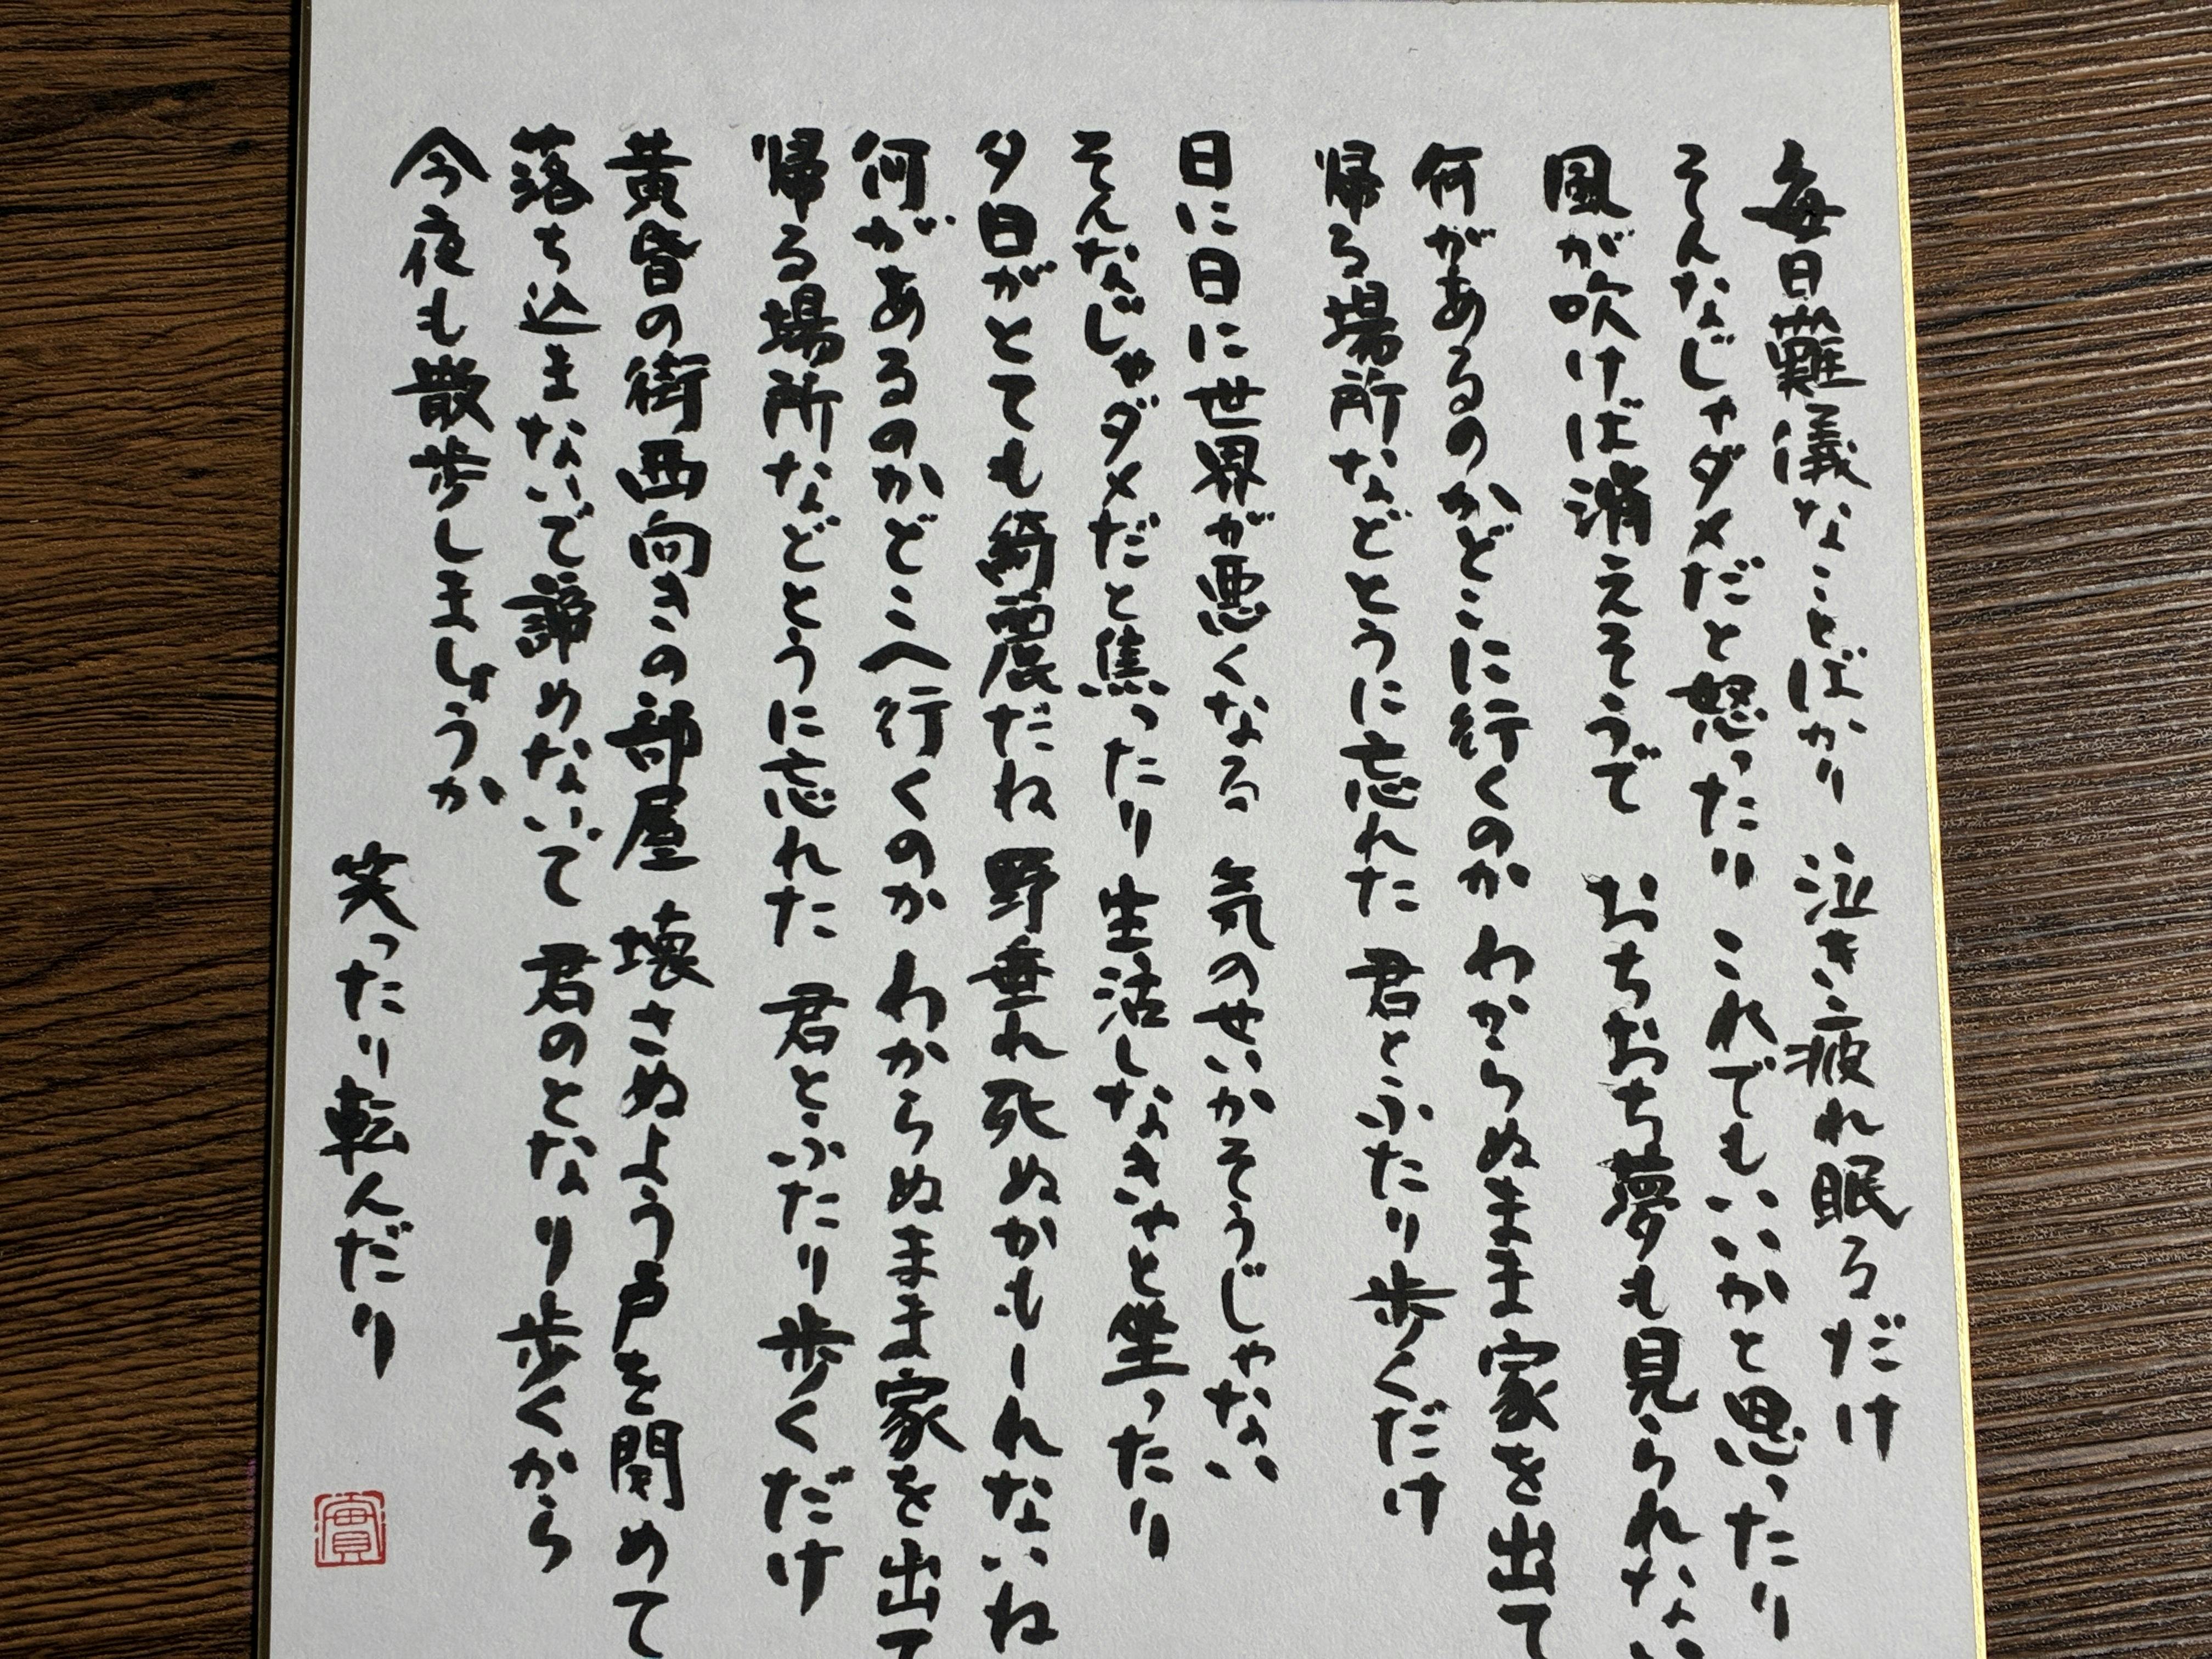 毎日難儀なことばかり 泣き疲れ眠るだけ
そんなじゃダメだと怒ったり これでもいいかと思ったり
風が吹けば消えそうで おちおち夢も見られない
何があるのかどこに行くのか わからぬまま家を出て
帰る場所などとうに忘れた 君とふたり歩くだけ
日に日に世界が悪くなる 気のせいかそうじゃない
そんなじゃダメだと焦ったり 生活しなきゃと坐ったり
夕日がとても綺麗だね 野垂れ死ぬかもしれないね
何があるのかどこへ行くのか わからぬまま家を出て
帰る場所などとうに忘れた 君とふたり歩くだけ
黄昏の街西向きの部屋 壊さぬよう戸を閉めて
落ち込まないで諦めないで 君のとなり歩くから
今夜も散歩しましょうか
笑ったり転んだり
實